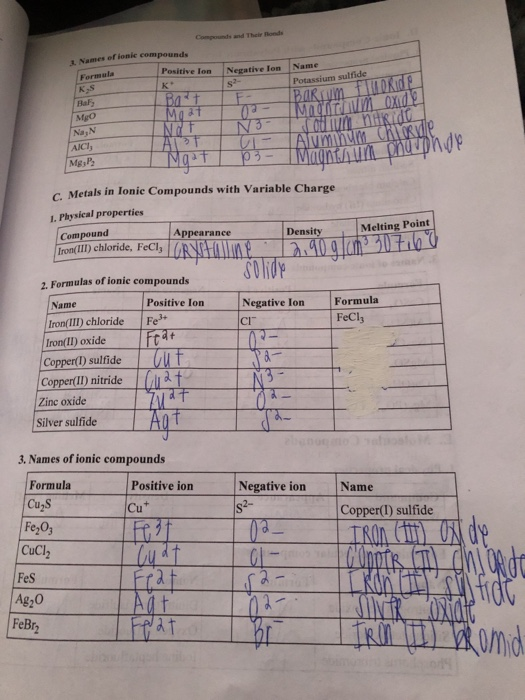 Compounds and Their Bonds
3. Names of ionic compounds
Formula Positive Ion Negative Ion Name
K₂S K⁺ S²⁻ Potassium sulfide
BaF₂ Ba2+ F- Barium Fluoride
MgO Mg2+ O2- Magnesium oxide
Na₃N Na+ N3- Sodium nitride
AlCl₃ Al3+ Cl- Aluminum Chloride
Mg₃P₂ Mg2+ P3- Magnesium phosphide
C. Metals in Ionic Compounds with Variable Charge
1. Physical properties
Compound Appearance Density Melting Point
Iron(III) chloride, FeCl₃ CRystalline 2.90 g/cm³ 307.6°C
solide
2. Formulas of ionic compounds
Name Positive Ion Negative Ion Formula
Iron(III) chloride Fe³⁺ Cl⁻ FeCl₃
Iron(II) oxide Fe2+ O2-
Copper(I) sulfide Cu+ S2-
Copper(II) nitride Cu2+ N3-
Zinc oxide Zn2+ O2-
Silver sulfide Ag+ S2-
3. Names of ionic compounds
Formula Positive ion Negative ion Name
Cu₂S Cu⁺ S²⁻ Copper(I) sulfide
Fe₂O₃ Fe3+ O2- IRon (III) Oxide
CuCl₂ Cu2+ Cl- Copper (II) chloride
FeS Fe2+ S2- IRon (II) sulfide
Ag₂O Ag+ O2- Silver oxide
FeBr₂ Fe2+ Br- IRon (II) bromid